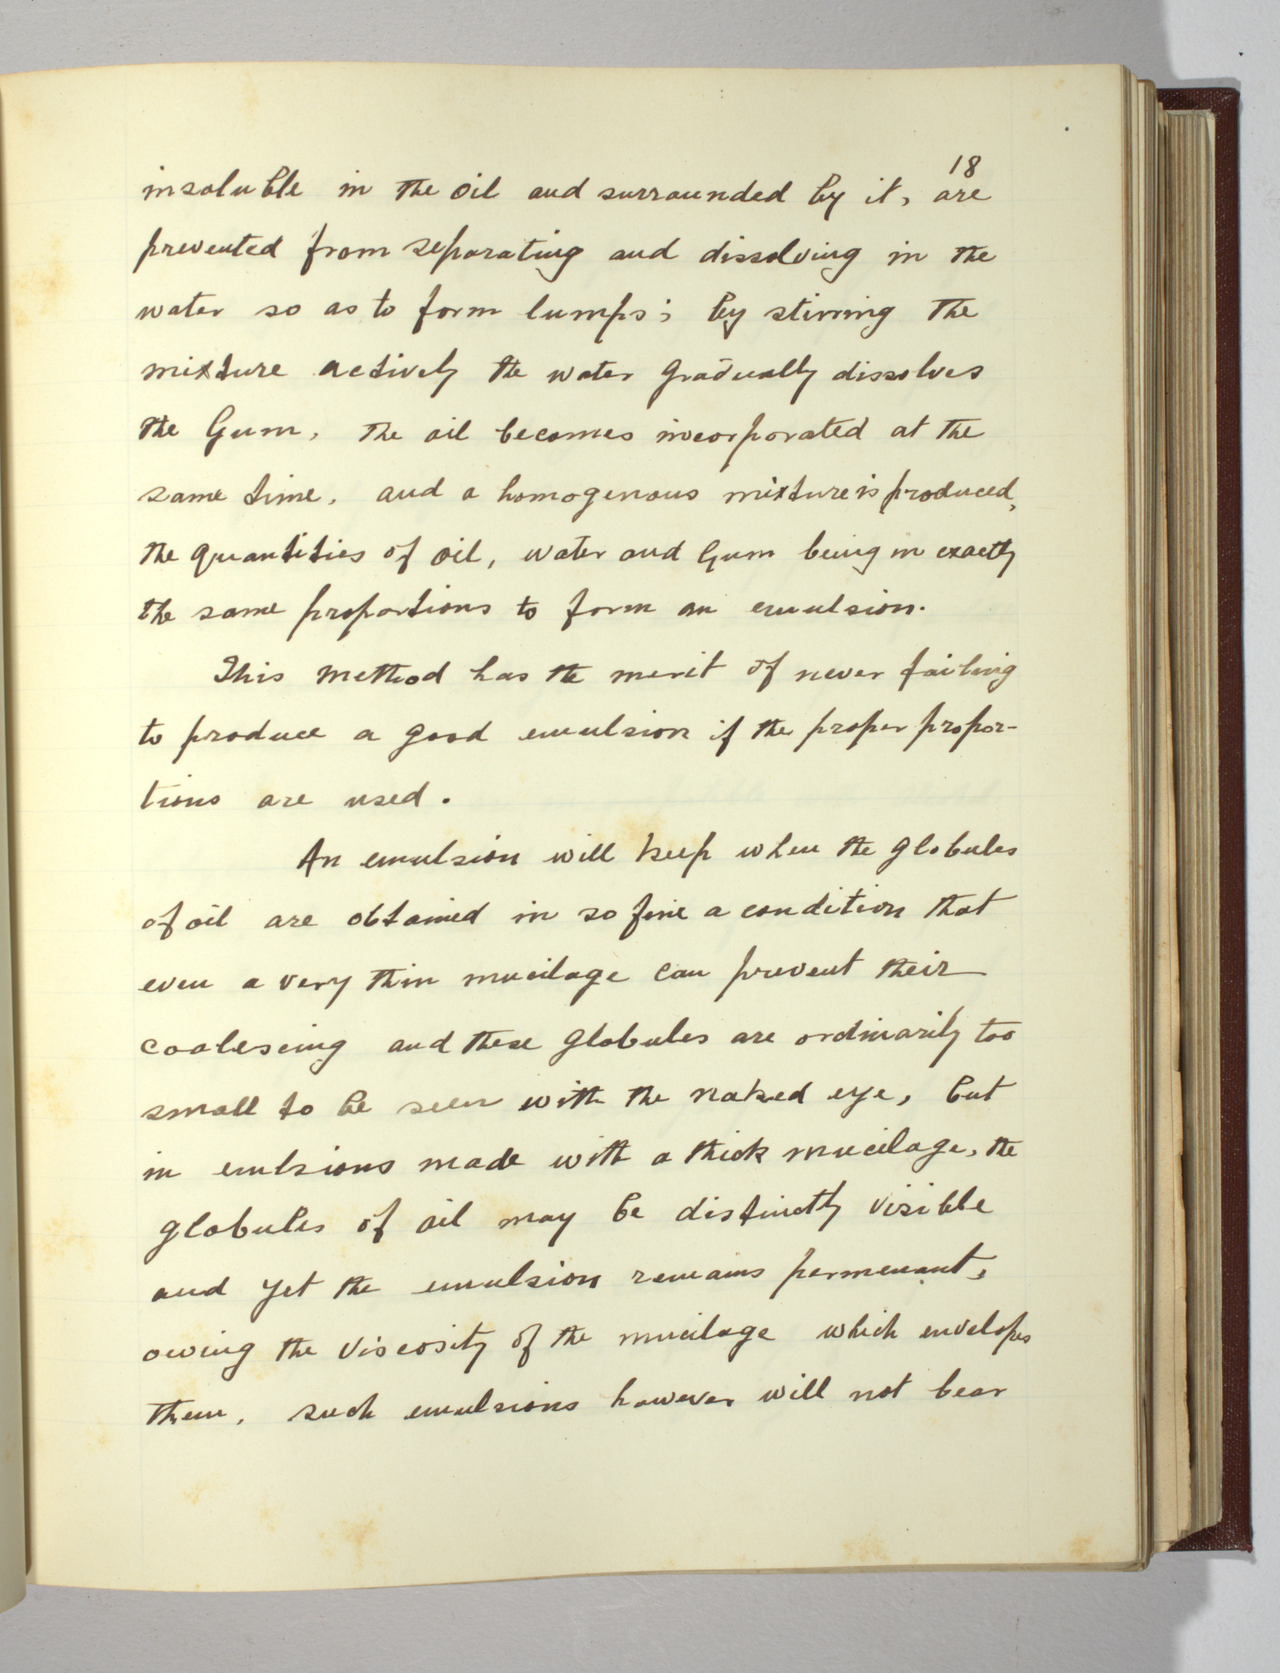 18
insoluble in the oil and surrounded by it, are
prevented from separating and dissolving in the
water so as to form lumps; by stirring the
mixture actively the water gradually dissolves
the Gum, the oil becomes incorporated at the
same time, and a homogenous mixture is produced,
the quantities of oil, water and Gum being in exactly
the same proportions to form an emulsion.
This method has the merit of never failing
to produce a good emulsion if the proper propor-
tions are used.
An emulsion will keep when the globules
of oil are obtained in so fine a condition that
even a very thin mucilage can prevent their
coalescing and these globules are ordinarily too
small to be seen with the naked eye, but
in emlsions made with a thick mucilage, the
globules of oil may be distinctly visible
and yet the emulsion remains permenant,
owing the viscosity of the mucilage which envelopes
them, such emulsions however will not bear